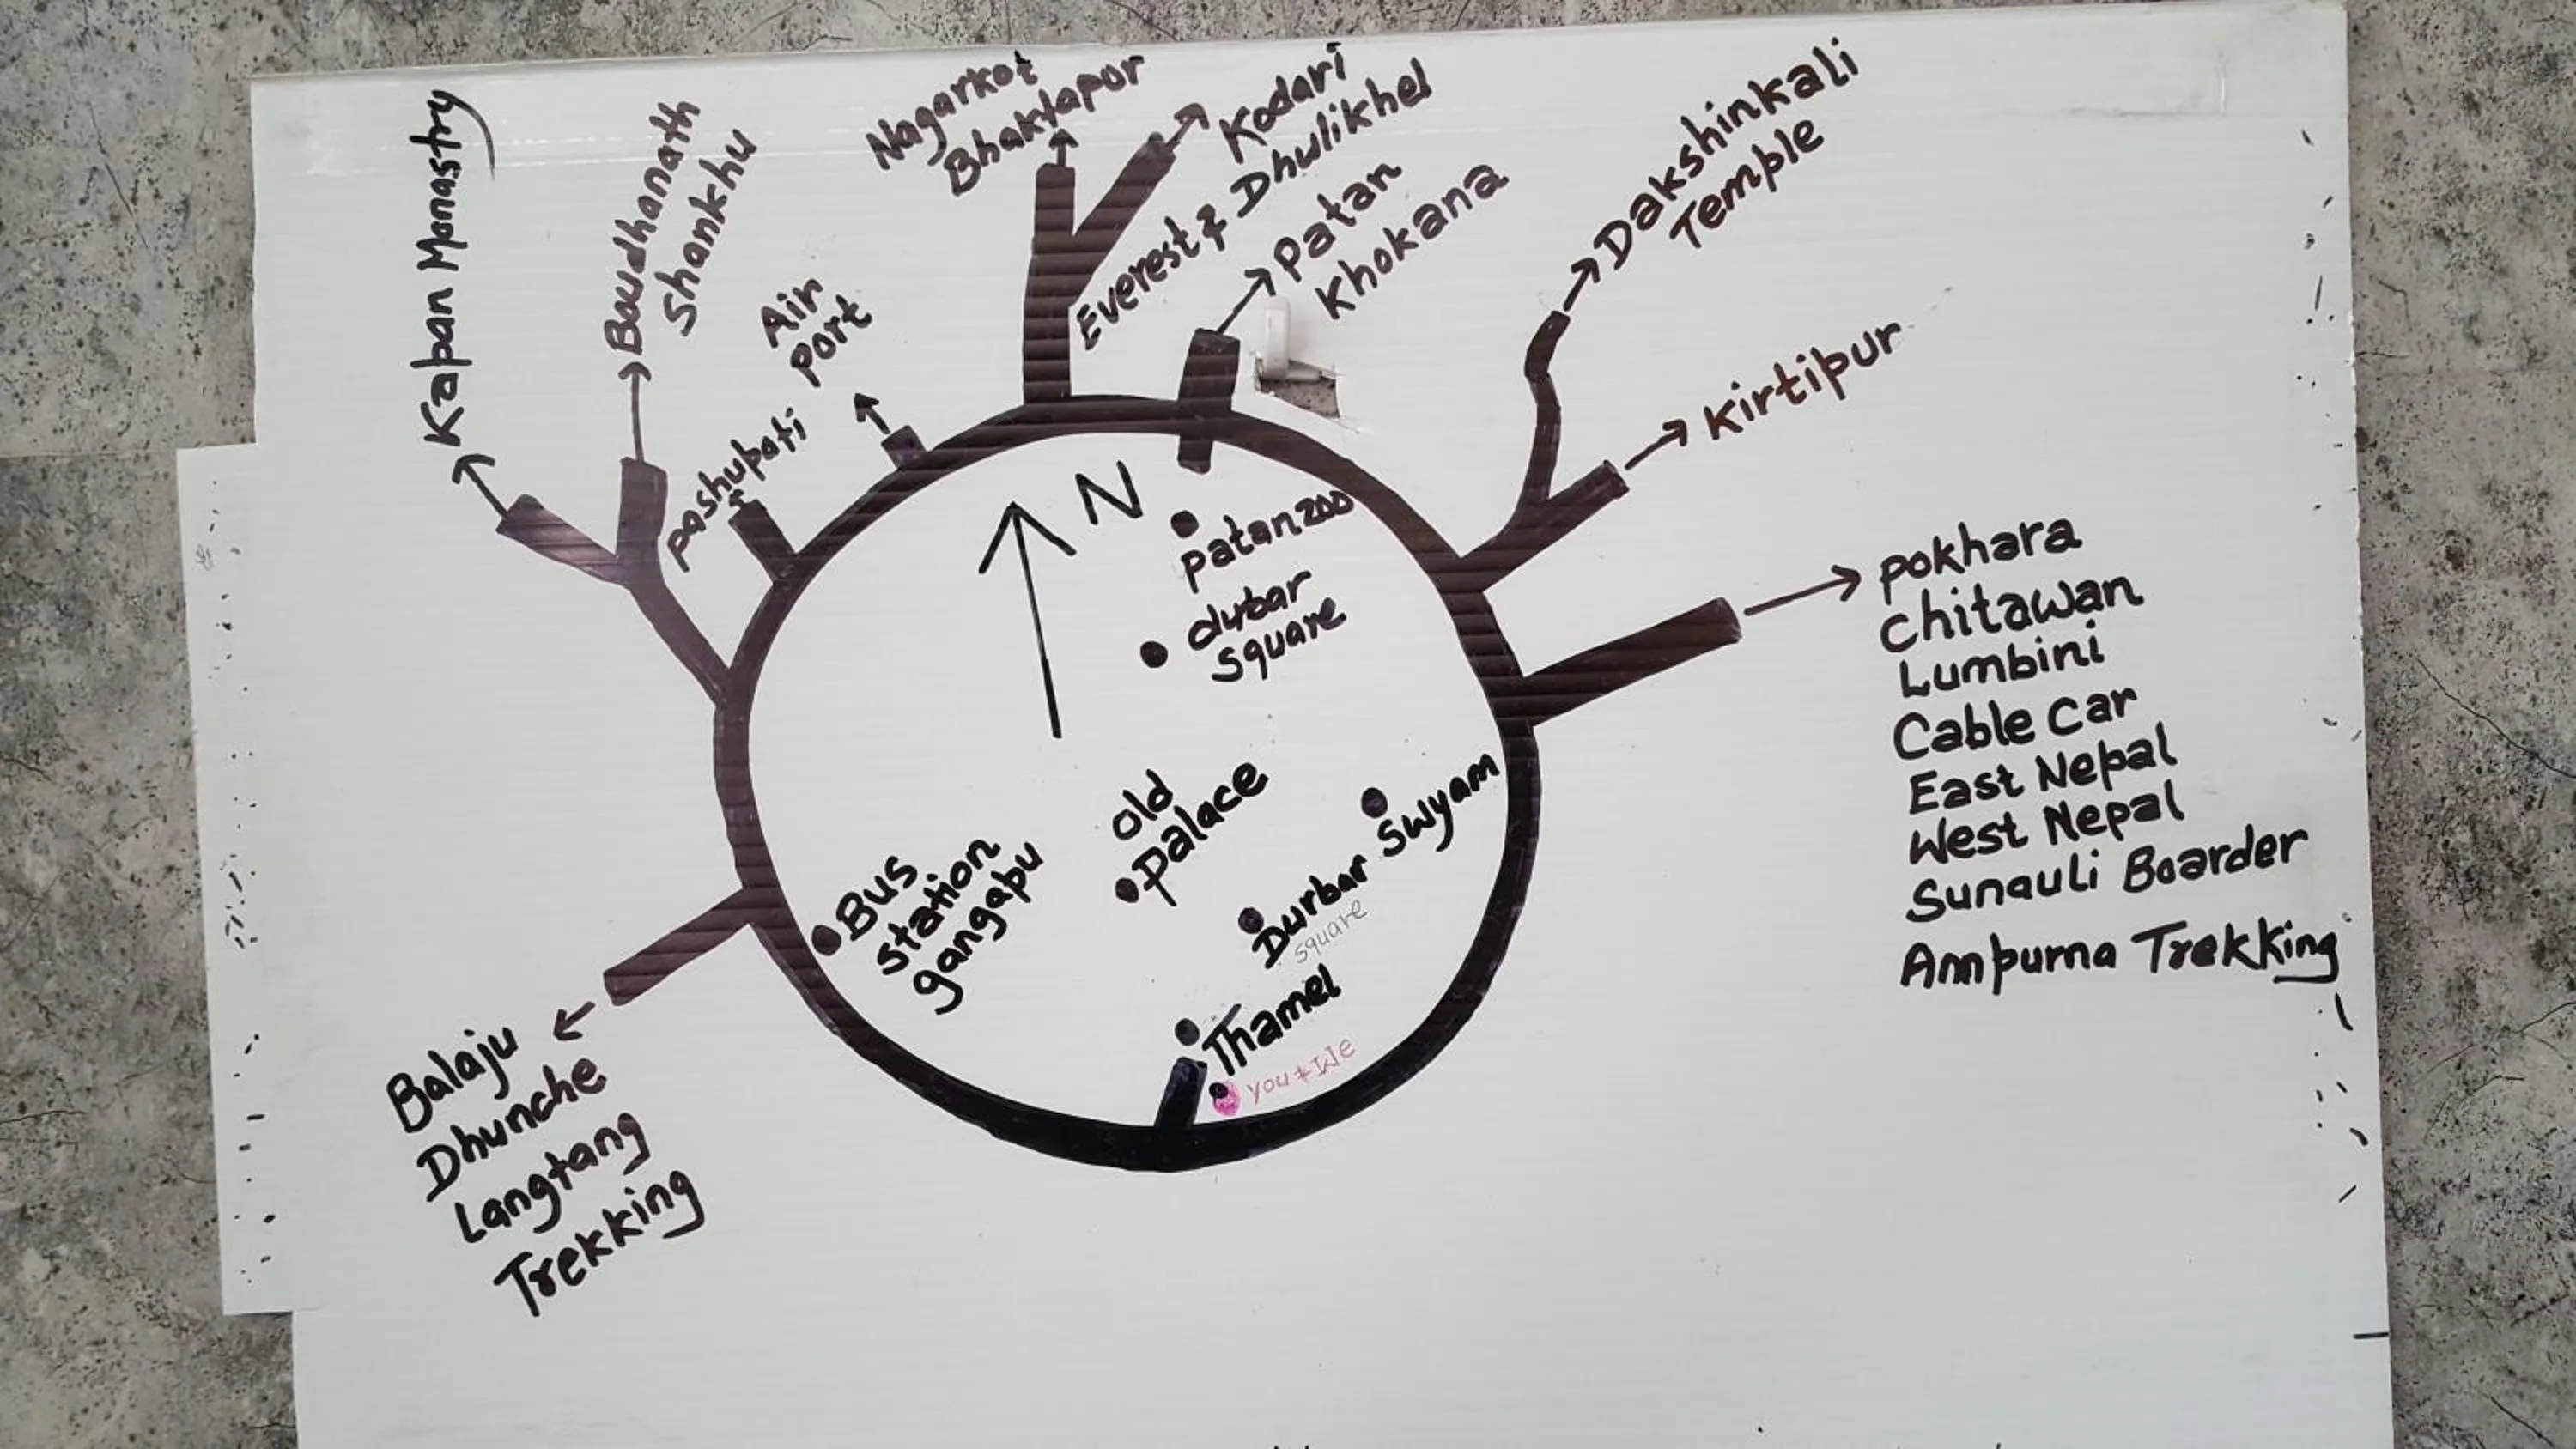 Kapan Monastry
Boudhanath
Shankhu
pashupati
Air
Port
Nagarkot
Bhaktapor
Kodari
Everest & Dhulikhel
Patan
Khokana
Dakshinkali
Temple
Kirtipur
pokhara
Chitawan
Lumbini
Cable Car
East Nepal
West Nepal
Sunauli Boarder
Annpurna Trekking
N
patan zoo
durbar
square
Old
Palace
Swyam
Durbar
square
Bus
station
gangapu
Thamel
you + We
Balaju
Dhunche
Langtang
Trekking